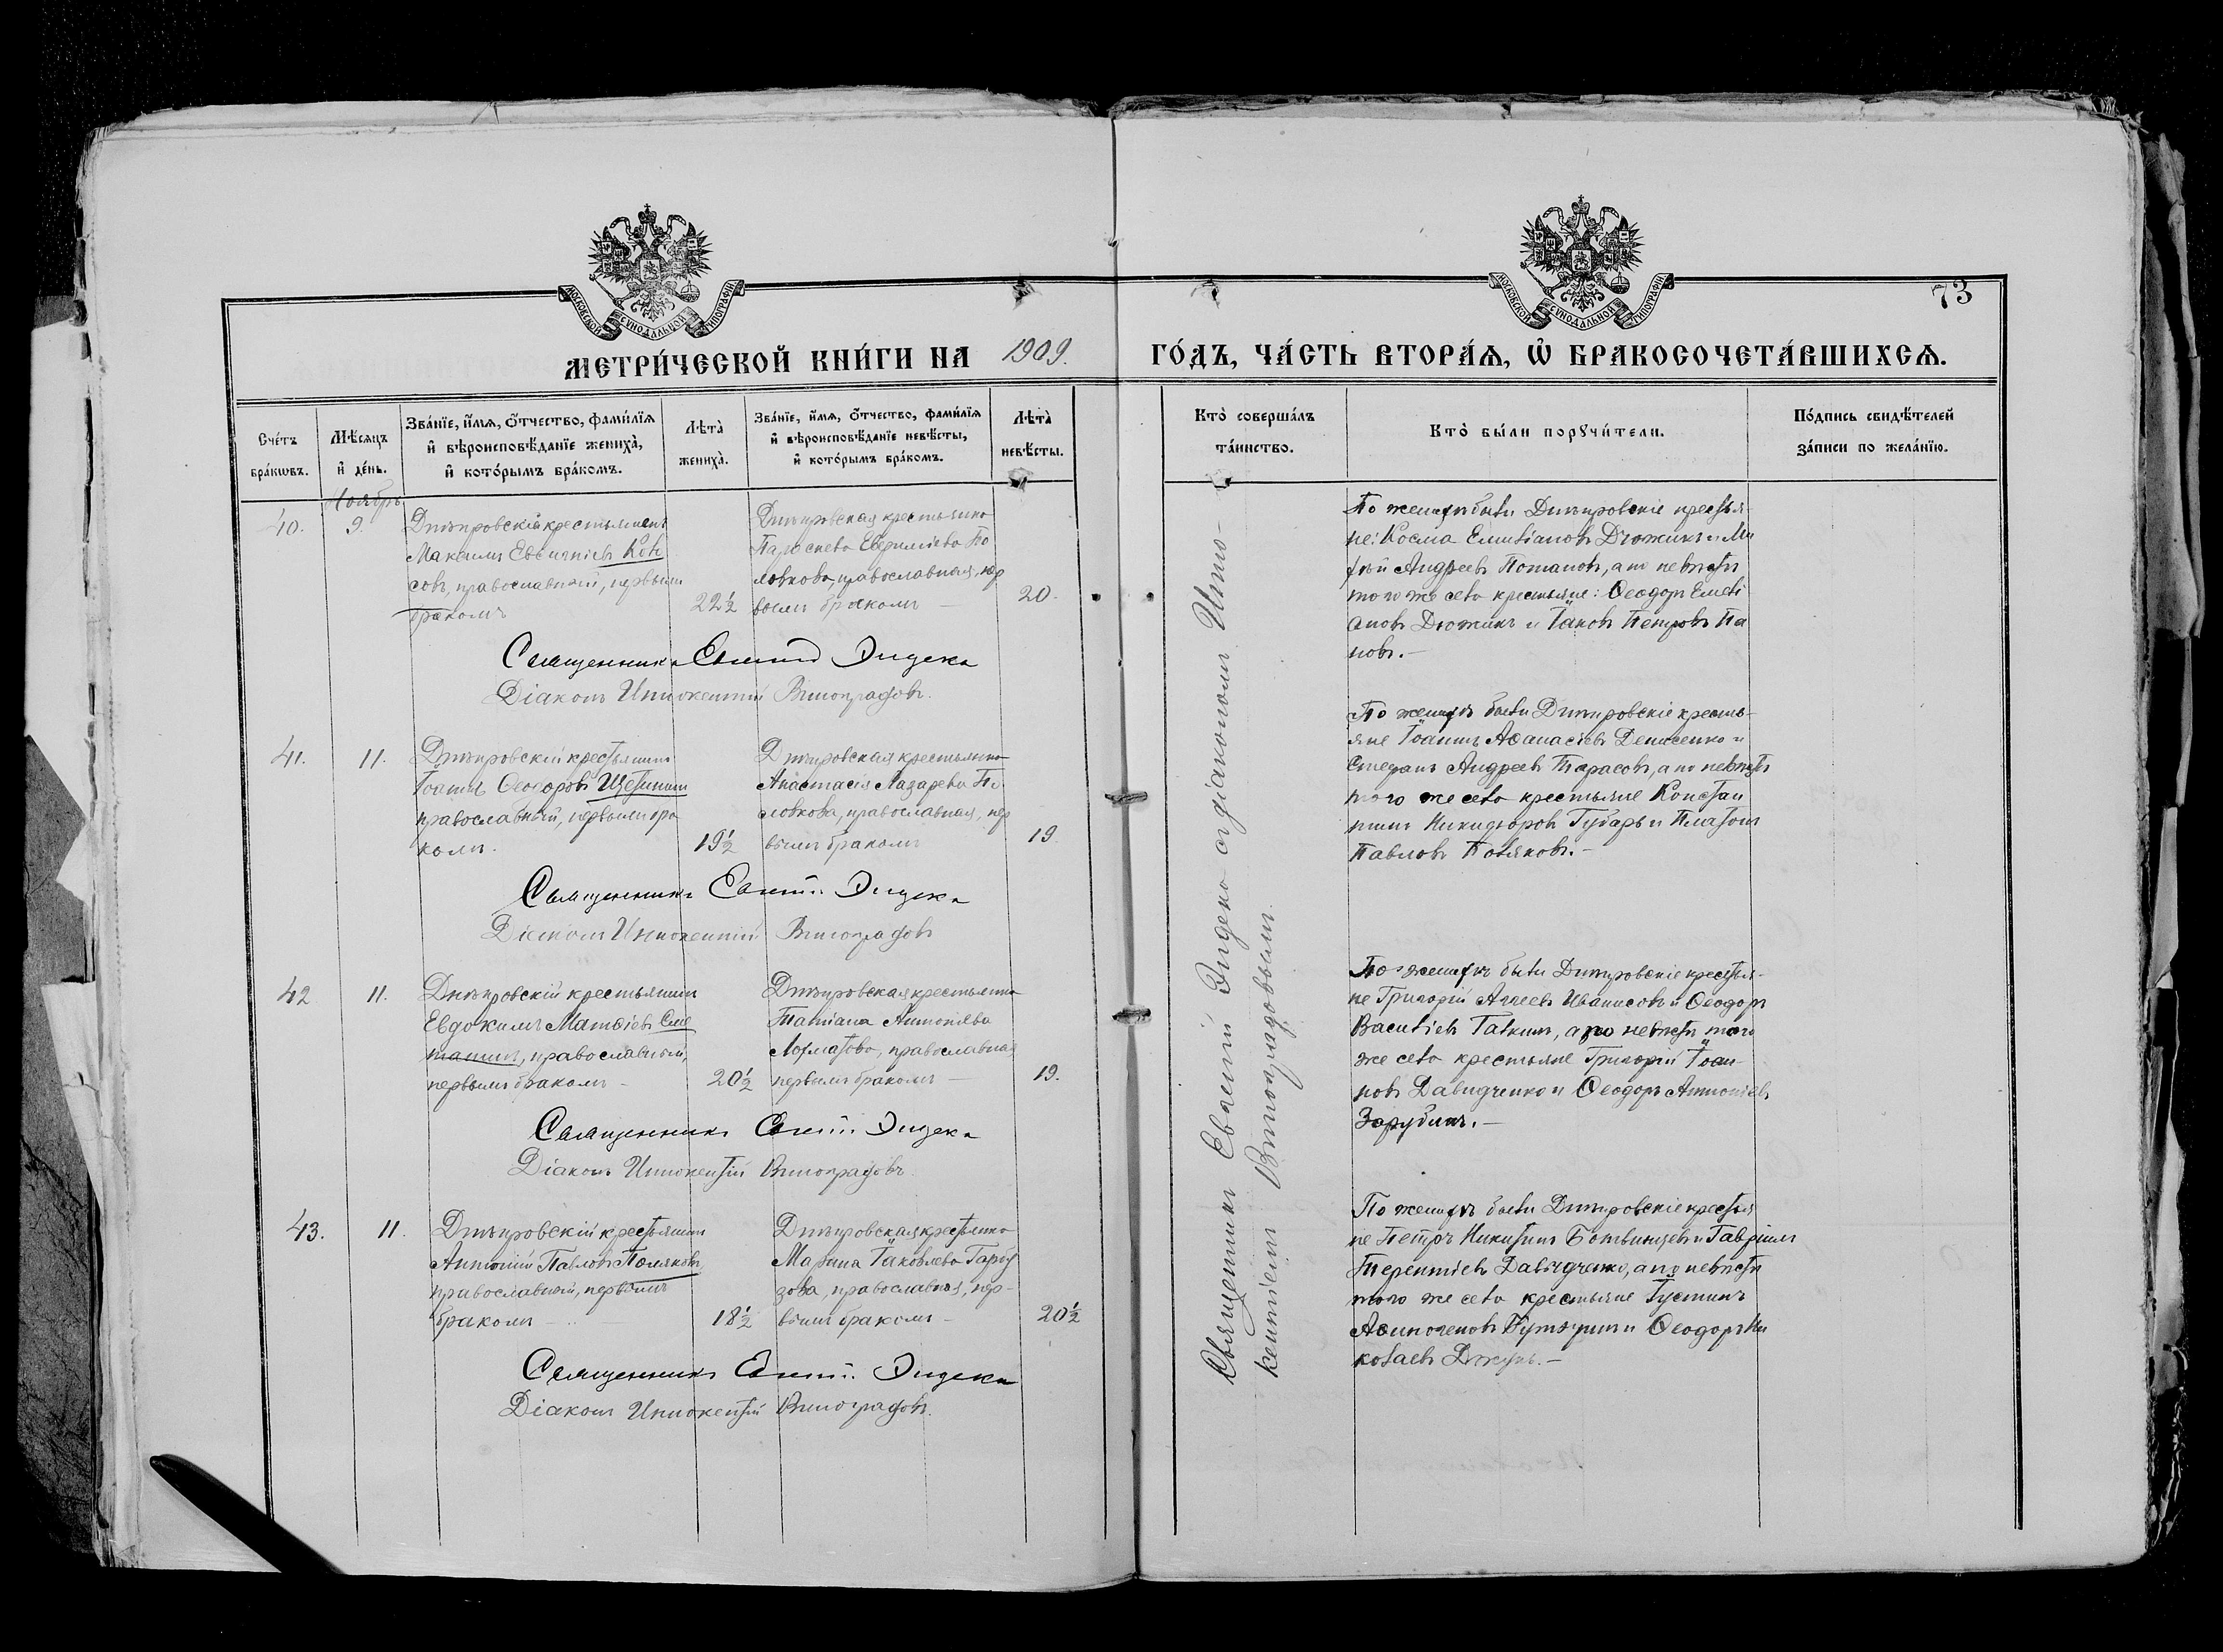 МОСКОВСКОЙ СУНОДАЛЬНОЙ ТИПОГРАФІИ
МЕТРИ́ЧЕСКОЙ КНИ́ГИ НА 1909.
Сче́тъ бра́кѡвъ.
Мѣ́сяцъ и҆ де́нь.
Зва́нїе, и҆́мя, ѻ҆́тчество, фами́лїя и҆ вѣроисповѣ́данїе жениха̀, и҆ кото́рымъ бра́комъ.
Лѣта̀ жениха̀.
Зва́нїе, и҆́мя, ѻ҆́тчество, фами́лїя и҆ вѣроисповѣ́данїе невѣ́сты, и҆ кото́рымъ бра́комъ.
Лѣта̀ невѣ́сты.
Ноябрь
40.
9.
Днѣпровскій крестьянинъ
Максимъ
совъ, православный, первымъ
бракомъ
22½
Днѣпровская крестьянка
Параскева По
ловкова, православная, пер
вымъ бракомъ —
20.
Священникъ Евгеній Эндека
Діаконъ Иннокентій Виноградовъ.
41.
11.
Днѣпровскій крестьянинъ
Іоаннъ Ѳеодоровъ Щетининъ
православный, первымъ бра
комъ.
19½
Днѣпровская крестьянка
Анастасія Лазарева По
ловкова, православная, пер
вымъ бракомъ
19.
Священникъ Евгеній Эндека
Діаконъ Иннокентій Виноградовъ
42
11.
Днѣпровскій крестьянинъ
Евдокимъ Матѳіевъ Сме
танинъ, православный,
первымъ бракомъ —
20½
Днѣпровская крестьянка
Татіана Антоніева
Лохматова, православная
первымъ бракомъ —
19.
Священникъ Евгеній Эндека
Діаконъ Иннокентій Виноградовъ.
43.
11.
Днѣпровскій крестьянинъ
Антоній Павловъ Поляковъ,
православный, первымъ
бракомъ —
18½
Днѣпровская крестьянка
Марина Іаковлева
православная, пер-
вымъ бракомъ —
20½
Священникъ Евгеній Эндека
Діаконъ Иннокентій Виноградовъ.
МОСКОВСКОЙ СУНОДАЛЬНОЙ ТИПОГРАФІИ
73
ГО́ДЪ, ЧА́СТЬ ВТОРА́Я, Ѡ҆ БРАКОСОЧЕТА́ВШИХСЯ.
Кто̀ соверша́лъ та́инство.
Кто̀ бы́ли порꙋчи́тели.
По́дпись свидѣ́телей за́писи по жела́нїю.
Священникъ Евгеній Эндека съ діакономъ Инно-
кентіемъ Виноградовымъ.
По женихѣ были Днѣпровскіе крестья-
не: Косма Емиліановъ Дюжикъ и
Андреевъ Потаповъ, а по невѣстѣ
того же села крестьяне: Ѳеодоръ Емелі
ановъ Дюжикъ и Іаковъ Петровъ Па
новъ. —
По женихѣ были Днѣпровскіе кресть-
яне Іоаннъ Аѳанасіевъ Денисенко и
Стефанъ Андреевъ Тарасовъ, а по невѣстѣ
того же села крестьяне Констан
тинъ Никифоровъ Губарь и Платонъ
Павловъ Поляковъ. —
По женихѣ были Днѣпровскіе крестья-
не Григорій Аггеевъ Иванисовъ и Ѳеодоръ
Василіевъ Галкинъ, а по невѣстѣ того
же села крестьяне Григорій Іоан-
новъ Давидченко и Ѳеодоръ Антоніевъ
Зарубинъ. —
По женихѣ были Днѣпровскіе крестья
не Петръ Никитинъ Ботвинцевъ и Гавріилъ
Терентіевъ Давидченко, а по невѣстѣ
того же села крестьяне Іустинъ
Аѳиногеновъ и Ѳеодоръ Ни
колаевъ